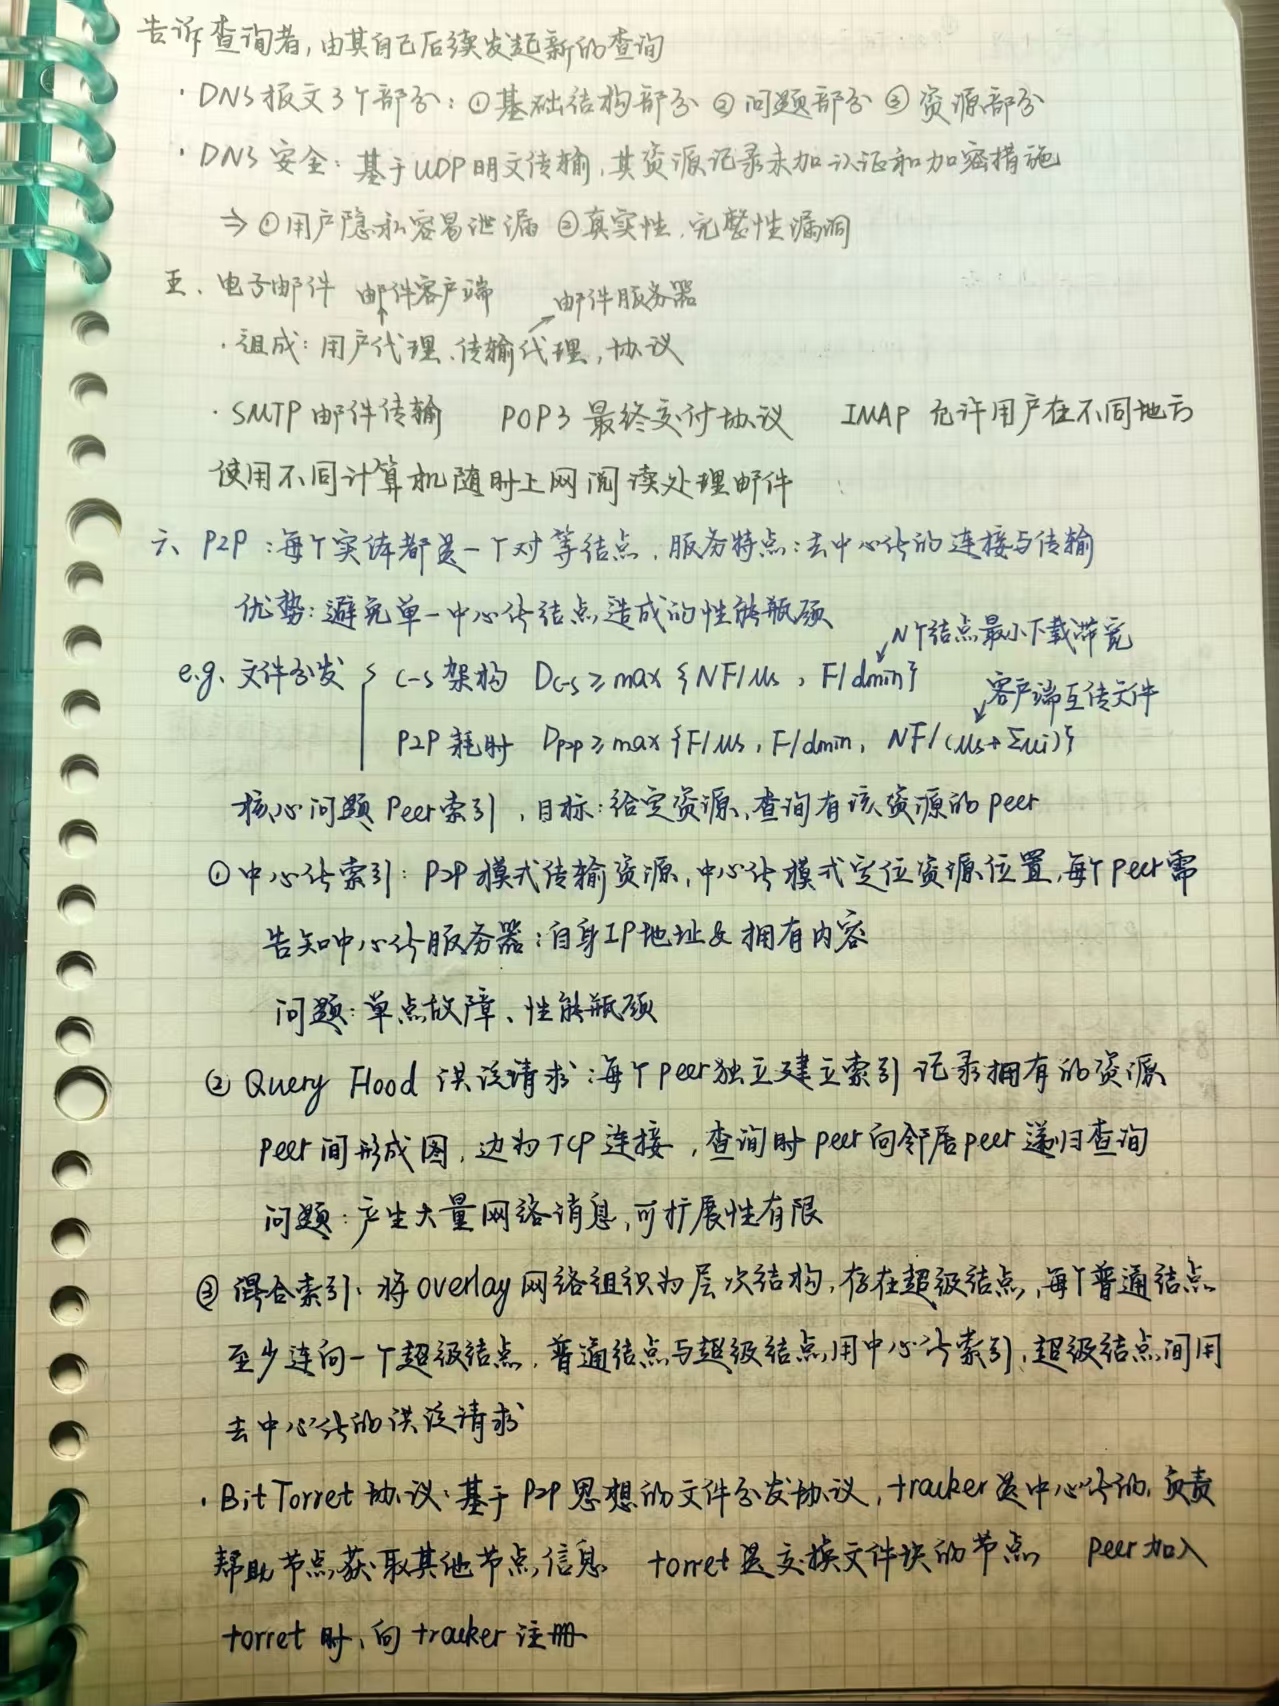 告诉查询者,由其自己后续发起新的查询
· DNS报文3个部分:①基础结构部分 ②问题部分 ③资源部分
· DNS 安全:基于UDP明文传输,其资源记录未加认证和加密措施
⇒ ①用户隐私容易泄漏 ②真实性、完整性漏洞
五、电子邮件 邮件客户端 邮件服务器
· 组成:用户代理、传输代理,协议
· SMTP 邮件传输 POP3 最终交付协议 IMAP 允许用户在不同地方
使用不同计算机随时上网阅读处理邮件
六、P2P:每个实体都是一个对等结点,服务特点:去中心化的连接与传输
优势:避免单一中心化结点造成的性能瓶颈
N个结点最小下载带宽
e.g. 文件分发 { C-S 架构 Dc-s ≥ max {NF/us , F/dmin}
客户端互传文件
P2P 耗时 Dp2p ≥ max {F/us, F/dmin, NF/(us+Σui)}
核心问题 Peer索引,目标:给定资源,查询有该资源的peer
①中心化索引:P2P模式传输资源,中心化模式定位资源位置,每个peer需
告知中心化服务器:自身IP地址& 拥有内容
问题:单点故障、性能瓶颈
② Query Flood 洪泛请求:每个peer独立建立索引 记录拥有的资源
peer间形成图,边为TCP连接,查询时peer向邻居peer递归查询
问题:产生大量网络消息,可扩展性有限
③ 混合索引:将overlay网络组织为层次结构,存在超级结点,每个普通结点
至少连向一个超级结点,普通结点与超级结点用中心化索引,超级结点间用
去中心化的洪泛请求
· Bit Torret 协议:基于P2P思想的文件分发协议,tracker是中心化的,负责
帮助节点获取其他节点信息 torret是交换文件块的节点 peer加入
torret时,向tracker注册